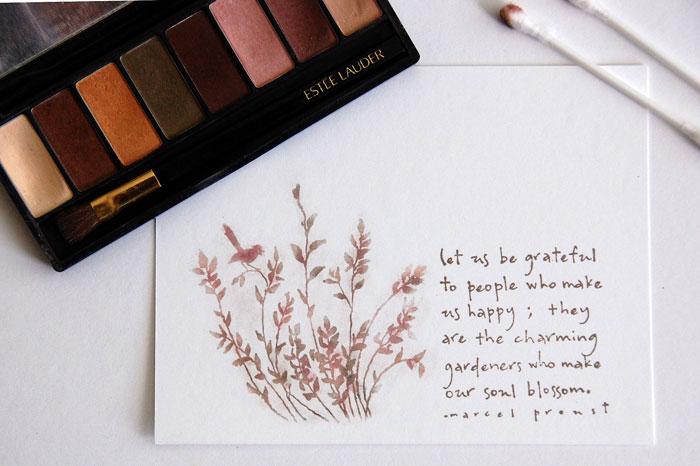 ESTEE LAUDER
let us be grateful
to people who make
us happy ; they
are the charming
gardeners who make
our soul blossom.
- marcel proust